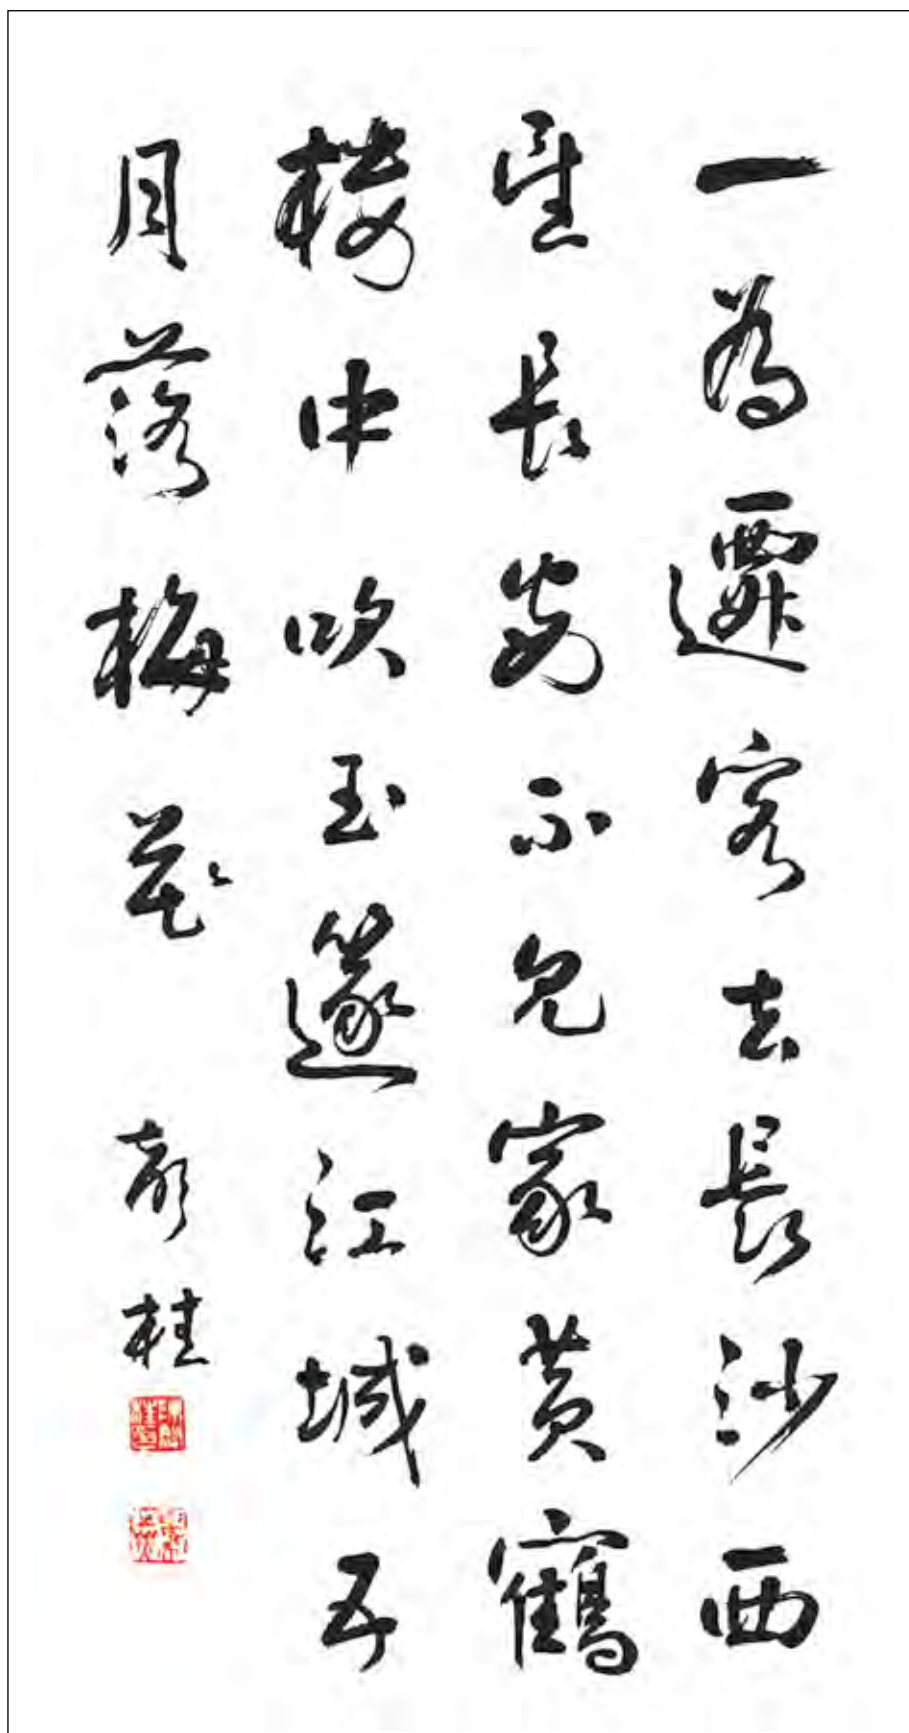 一為遷客去長沙西
望長安不見家黃鶴
樓中吹玉邃江城五
月落梅花
桂